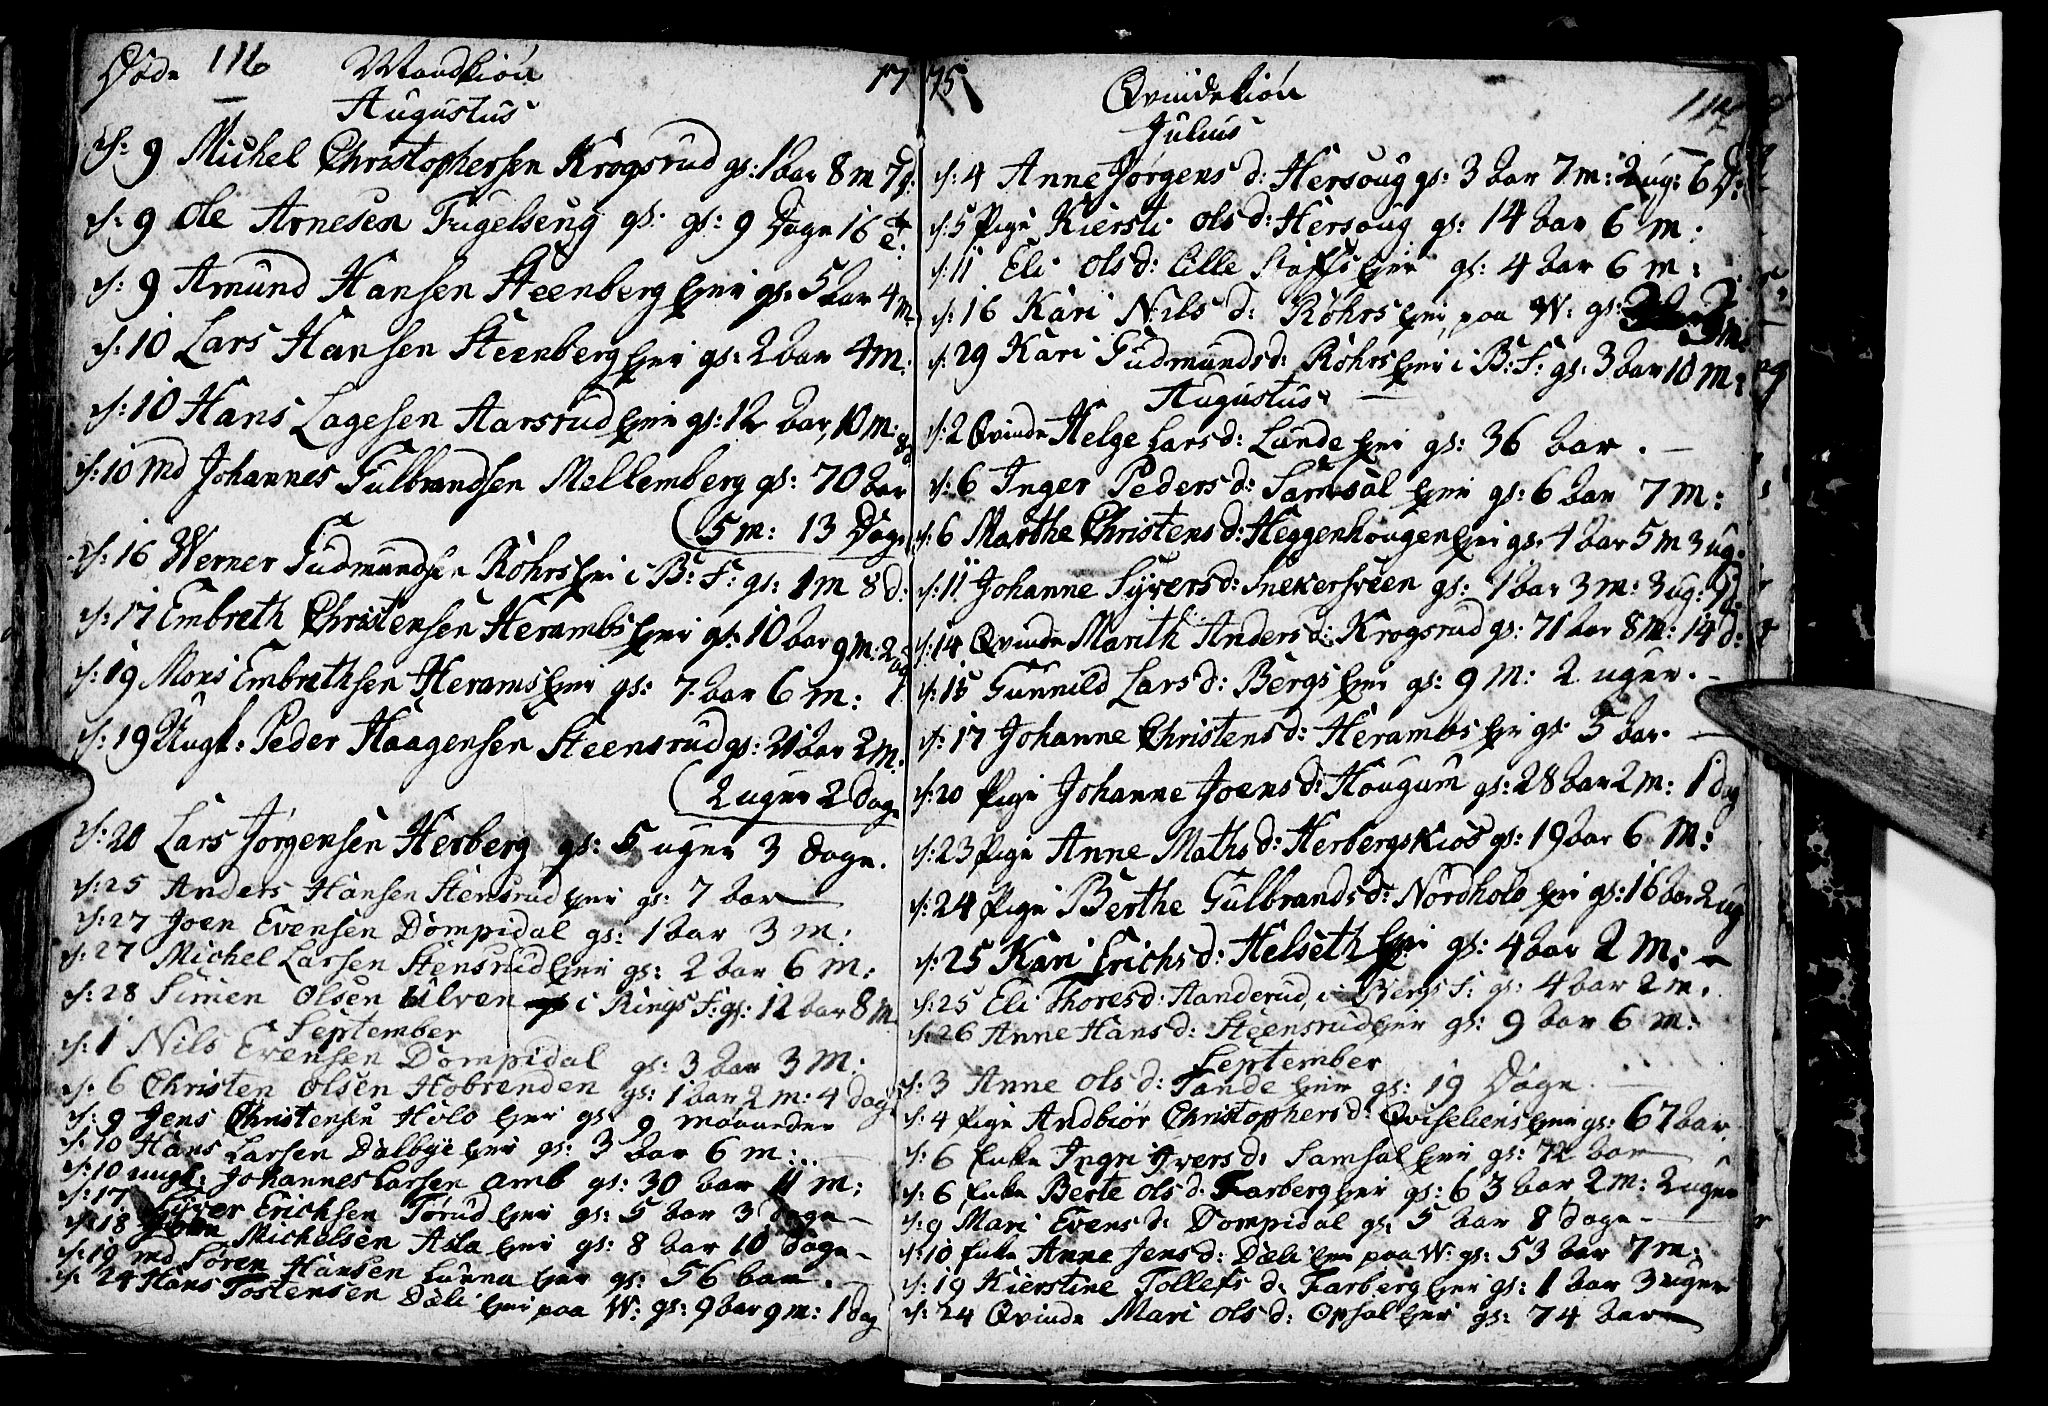 Døde 116 Mandkiøn 17
Augustus
d: 9 Michel Christophersen Krogsrud gl: 1 aar 8 m 7 d:
d: 9 Ole Arnesen Fugelseng gl: gl: 9 Dage 16
d: 9 Amund Hansen Steenberg Eyer gl: 5 aar 4 m
d: 10 Lars Hansen Steenberg Eyer gl: 2 aar 4 m:
d: 10 Hans Lagesen Aarsrud Eyer gl: 12 aar, 10 m:
d: 10 md Johannes Gulbrandsen Mellemberg gl: 70 aar
(5 m: 13 Dage
d: 16 Werner Gudmundsen Røhrs Eyer i B: F: gl: 1 m 8 d:
d: 17 Embreth Christensen Herambs Eyer gl: 10 aar 9 m: 2 ug
d: 19 Mons Embrethsen Herams Eyer gl: 7 aar 6 m:
d: 19 Ungk: Peder Haagensen Steensrud gl: 21 aar 2 m:
(2 uger 2 dage
d: 20 Lars Jørgensen Herberg gl: 5 uger 3 dage.
d: 25 Anders Hansen Stensrud Eyer gl: 7 aar
d: 27 Joen Evensen Dompidal gl: 1 aar 3 m:
d: 27 Michel Larsen Stensrud Eyer gl: 2 aar 6 m:
d: 28 Simen Olsen Ulven i Rings F: gl: 12 aar 8 m
September
d: 1 Nils Evensen Dompidal gl: 3 aar 3 m:
d: 6 Christen Olsen Hobrenden gl: 1 aar 2 m: 4 dage
d: 9 Jens Christensen Holo Eyer gl: 9 maaneder
d: 10 Hans Larsen Dalbye Eyer gl: 3 aar 6 m:
d: 10 ungk: Johannes Larsen Amb gl: 30 aar 11 m:
d: 17 Syver Erichsen Torud Eyer gl: 5 aar 3 dage
d: 18 Michelsen Asla Eyer gl: 8 aar 10 dage
d: 19 md Søren Hansen Lunna Eyer gl: 56 aar.
d: 24 Hans Tostensen Dæli Eyer paa W: gl: 9 aar 9 m: 1 dag
75 Qvindekiøn 117
Julius
d: 4 Anne Jørgens d: Hersoug gl: 3 aar 7 m: 2 ug: 6 D:
d: 5 Pige Kiersti Ols d: Hersoug gl: 14 aar 6 m:
d: 11 Eli Ols d: Lille Eyer gl: 4 aar 6 m:
d: 16 Kari Nils d: Røhrs Eyer paa W: gl: 3 m:
d: 29 Kari Gudmunds d: Røhrs Eyer i B: F: gl: 3 aar 10 m:
Augustus
d: 2 Qvinde Helge Lars d: Lunde Eyer gl: 36 aar.
d: 6 Inger Peders d: Samsal Eyer gl: 6 aar 7 m:
d: 6 Marthe Christens d: Heggenhougen Eyer gl: 1 aar 5 m 3 ug:
d: 11 Johanne Syvers d: Snekersveen gl: 1 aar 3 m: 3 ug:
d: 14 Qvinde Marith Anders d: Krogsrud gl: 71 aar 8 m: 14 d:
d: 15 Gunnild Lars d: Bergs Eyer gl: 9 m: 2 uger.
d: 17 Johanne Christens d: Herambs Eyer gl: 5 aar.
d: 20 Pige Johanne Joens d: Hougum gl: 28 aar 2 m: 1 dag
d: 23 Pige Anne Maths d: Herbergs Kiøs gl: 19 aar 6 m:
d: 24 Pige Berthe Gulbrands d: Nordholo Eyer gl: 16 aar 2 ug
d: 25 Kari Erichs d: Helseth Eyer gl: 4 aar 2 m:
d: 25 Eli Thores d: Aanderud, i Bergs F: gl: 4 aar 2 m.
d: 26 Anne Hans d: Steensrud Eyer gl: 9 aar 6 m:
September
d: 3 Anne Ols d: Tande Eyer gl: 19 Dage.
d: 4 Pige Andbior Christophers d: Qviseliens Eyer gl: 67 aar.
d: 6 Enke Ingri Ivers d: Samsal Eyer gl: 72 aar
d: 6 Enke Berte Ols d: Farberg Eyer gl: 63 aar 2 m: 2 uger
d: 9 Mari Evens d: Dompidal gl: 5 aar 8 dage
d: 10 Enke Anne Jens d: Dæli Eyer paa W: gl: 53 aar 7 m:
d: 19 Kierstine Tollefs d: Farberg Eyer gl: 1 aar 3 uger
d: 24 Qvinde Mari Ols d: Opsal Eyer gl: 74 aar